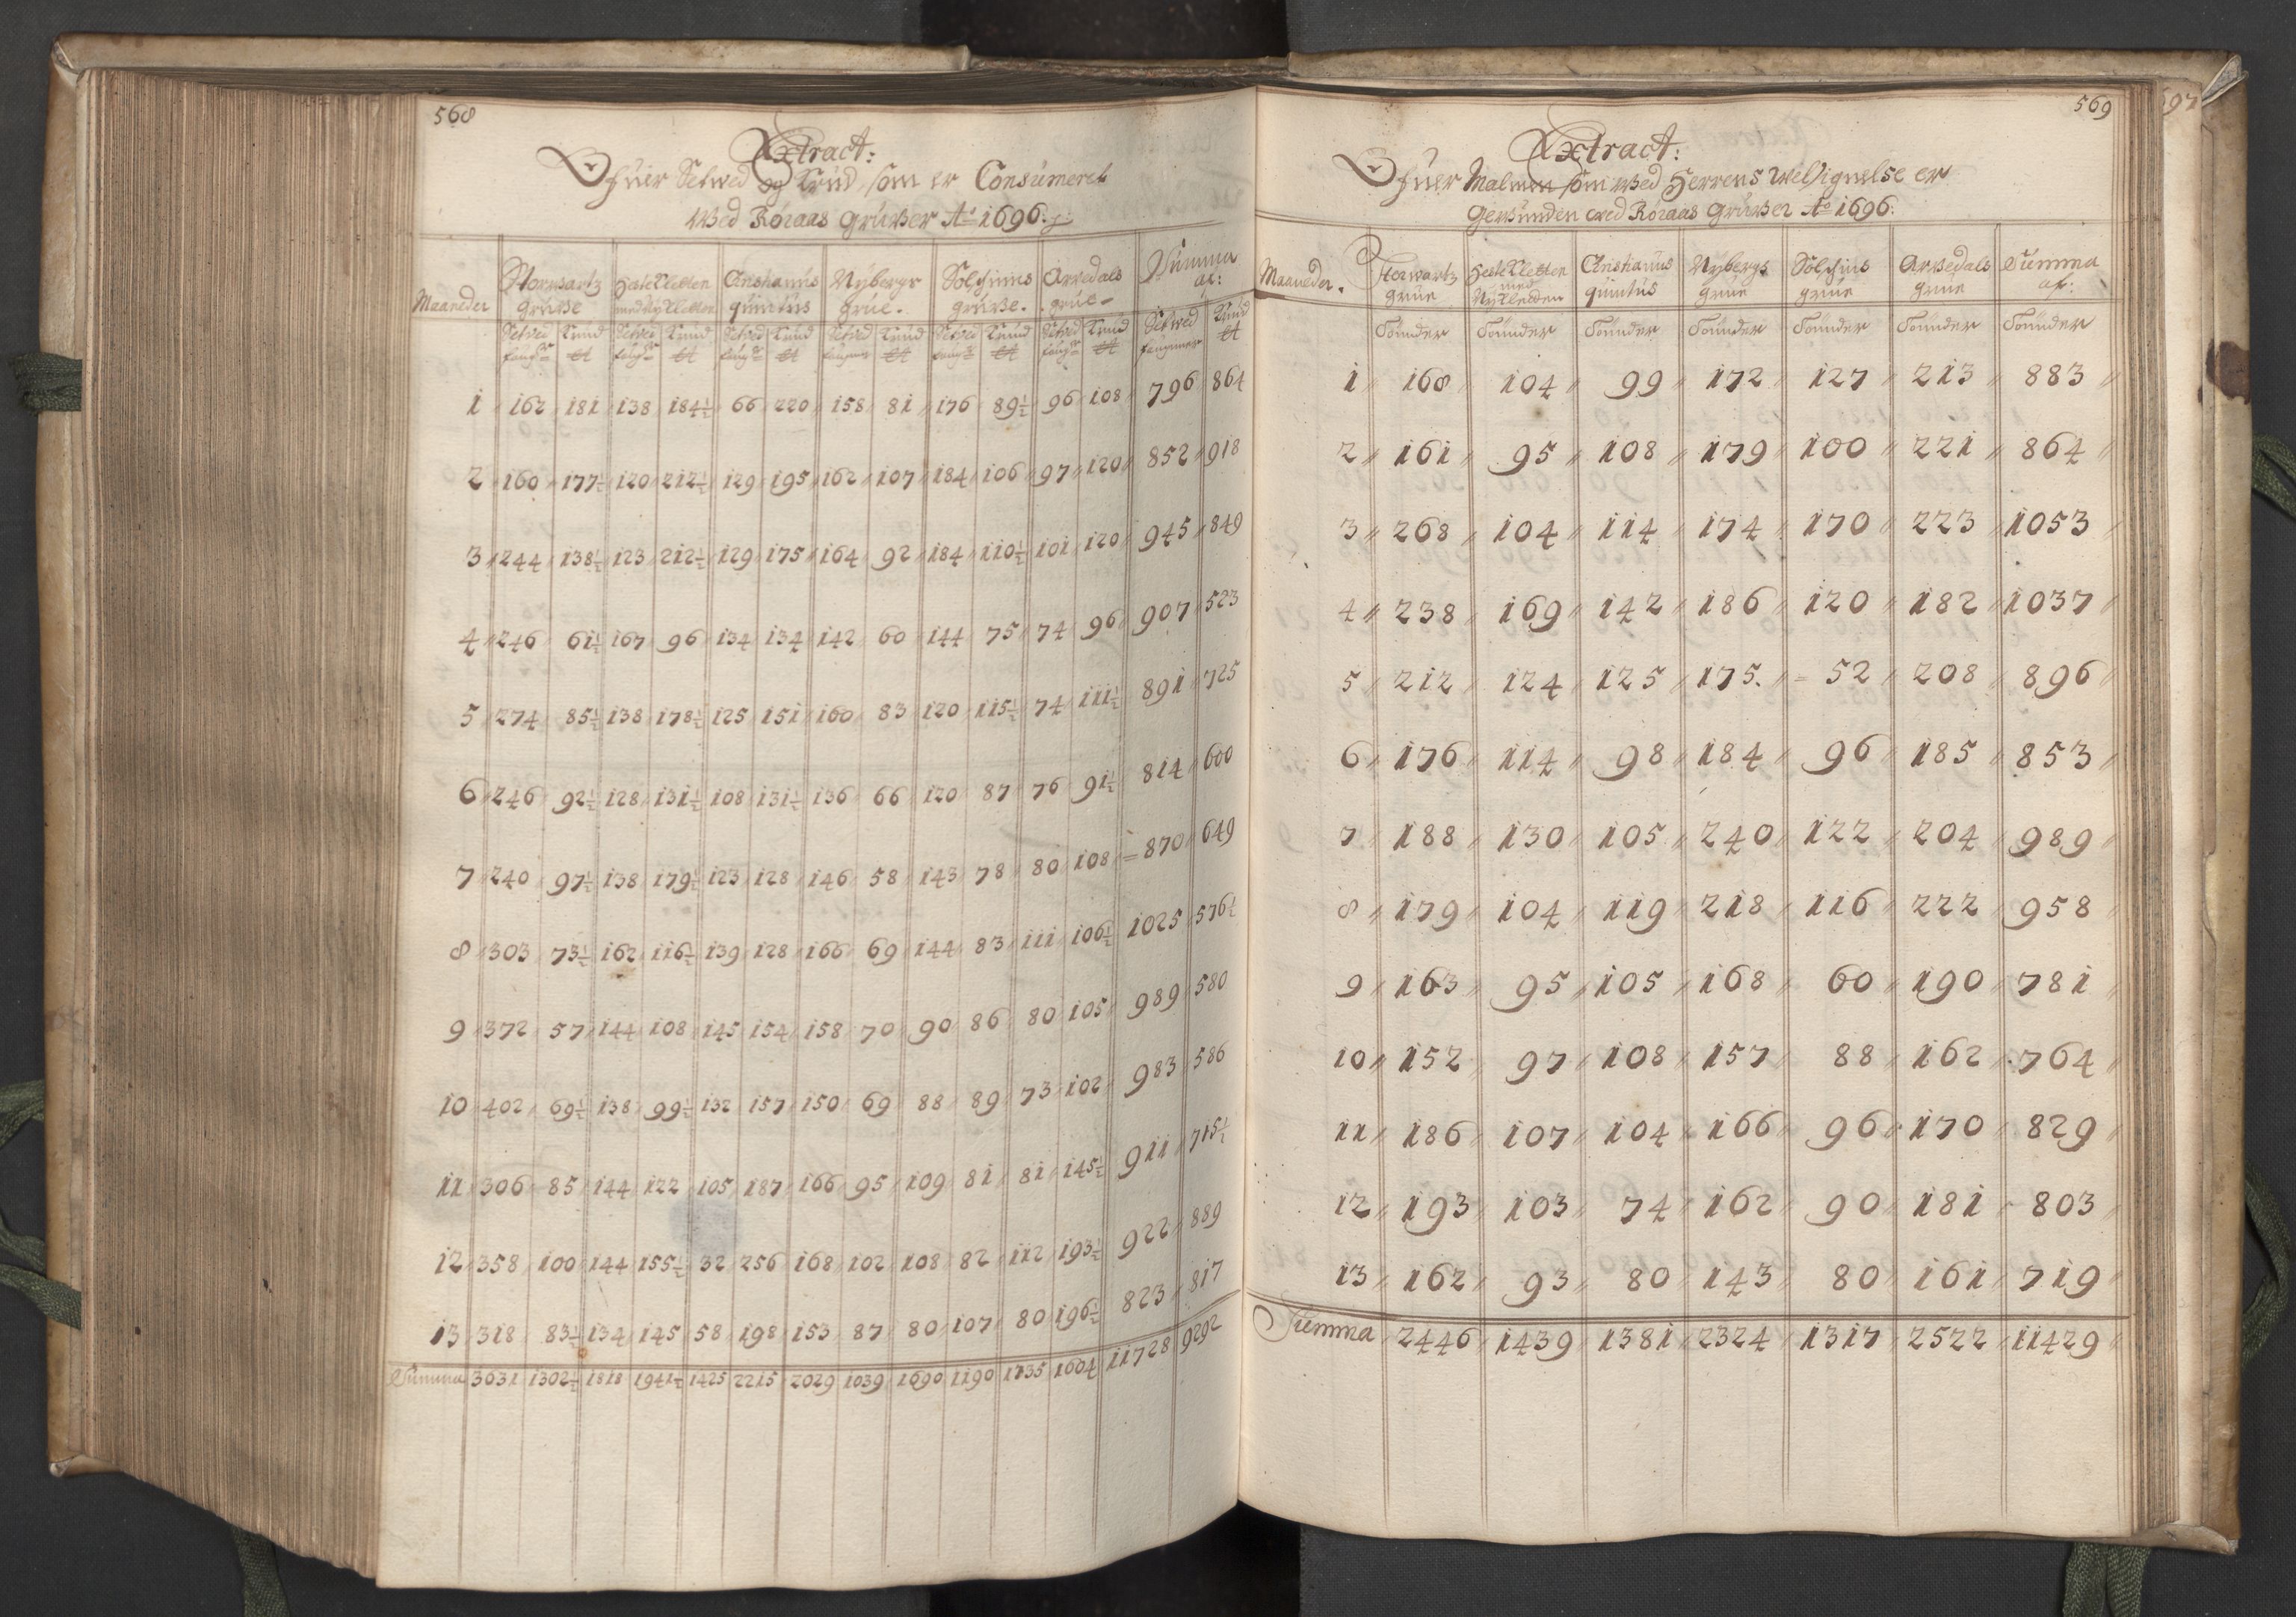 568
Extract:
Ofuer Setwed og Krud, som er Consumeret
wed Röraas gruber Ao 1696
Maaneder Storwartz grube Hestekletten med Nykletten Christianus quintus Nybergs grue. Solskins grube. Arvedals grue Summa af:
Setved Krud Setved Krud Setved Krud Setved Krud Setved Krud Setved Krud Setwed Krud
1 162 181 138 184½ 66 220 158 81 176 89½ 96 108 796 864
2 160 177½ 120 212½ 129 195 162 107 184 106 97 120 852 918
3 244 138½ 123 212½ 129 175 164 92 184 110½ 101 120 945 849
4 246 61½ 167 96 134 134 142 60 144 75 74 96 907 523
5 274 85½ 138 178½ 125 151 160 83 120 115½ 74 111½ 891 725
6 246 92½ 128 131½ 108 131½ 136 66 120 87 76 91½ 814 600
7 240 97½ 138 179½ 123 128 146 58 143 78 80 108 870 649
8 303 73½ 162 116½ 139 128 166 69 144 83 111 106½ 1025 576½
9 372 57 144 108 145 154 158 70 90 86 80 105 989 580
10 402 69½ 138 99½ 132 157 150 69 88 89 73 102 983 586
11 306 85 144 122 105 187 166 95 109 81 81 145½ 911 715½
12 358 100 144 155½ 32 256 168 102 108 82 112 193½ 922 889
13 318 83½ 134 145 58 198 153 87 80 107 80 196½ 823 817
Summa 3631 1302½ 1818 1941½ 1425 2215 2029 1039 1690 1190 1135 1604 11728 9292
569
Extract:
Ofuer Malmen som wed Herrens Welsignelse er
Gewunden wed Röraas Gruber Ao 1696.
Maaneder. Storwartz grue Hestekletten med Nykletten Christianus quintus Nybergs grue Solskins grue Arvedals grue Summa af:
Tönder Tönder Tönder Tönder Tönder Tönder Tönder
1 168 104 99 172 127 213 883
2 161 95 108 179 100 221 864
3 268 104 114 174 170 223 1053
4 238 169 142 186 120 182 1037
5 212 124 125 175 52 208 896
6 176 114 98 184 96 185 853
7 188 130 105 240 122 204 989
8 179 104 119 218 116 222 958
9 163 95 105 168 60 190 781
10 152 97 108 157 88 162 764
11 186 107 104 166 96 170 829
12 193 103 74 162 90 181 803
13 162 93 80 143 80 161 719
Summa 2446 1439 1381 2324 1317 2522 11429